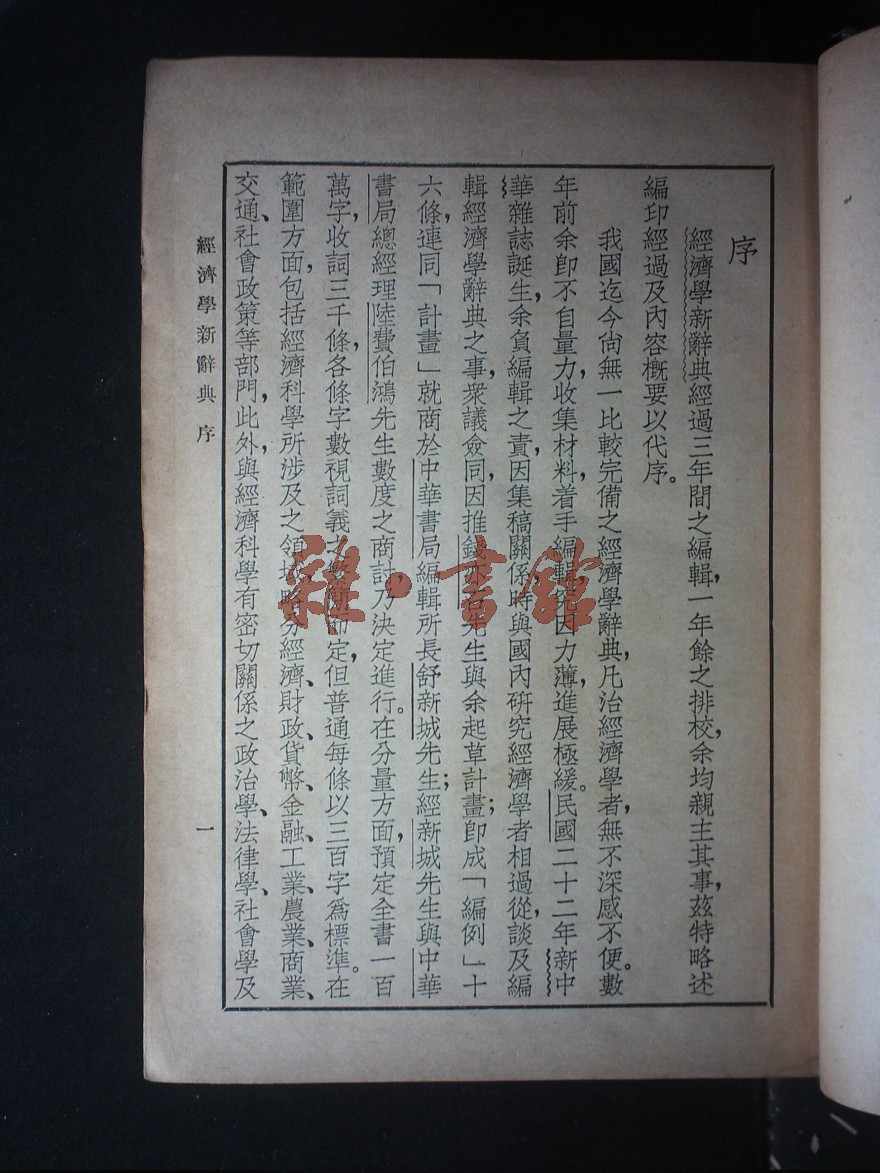 序
經濟學新辭典經過三年間之編輯，一年餘之排校，余均親主其事，茲特略述
編印經過及內容概要以代序。
我國迄今尙無一比較完備之經濟學辭典，凡治經濟學者，無不深感不便。數
年前余卽不自量力，收集材料，着手編輯，因力薄，進展極緩。民國二十二年新中
華雜誌誕生，余負編輯之責，因集稿關係，時與國內硏究經濟學者相過從，談及編
輯經濟學辭典之事，衆議僉同，因推錢亦石先生與余起草計畫；卽成「編例」十
六條，連同「計畫」就商於中華書局編輯所長舒新城先生；經新城先生與中華
書局總經理陸費伯鴻先生數度之商討，乃決定進行。在分量方面，預定全書一百
萬字，收詞三千條，各條字數視詞義之繁簡而定，但普通每條以三百字爲標準。在
範圍方面，包括經濟科學所涉及之領域，略分經濟、財政、貨幣、金融、工業、農業、商業、
交通、社會政策等部門，此外，與經濟科學有密切關係之政治學、法律學、社會學及
經濟學新辭典 序
一
雜·書館